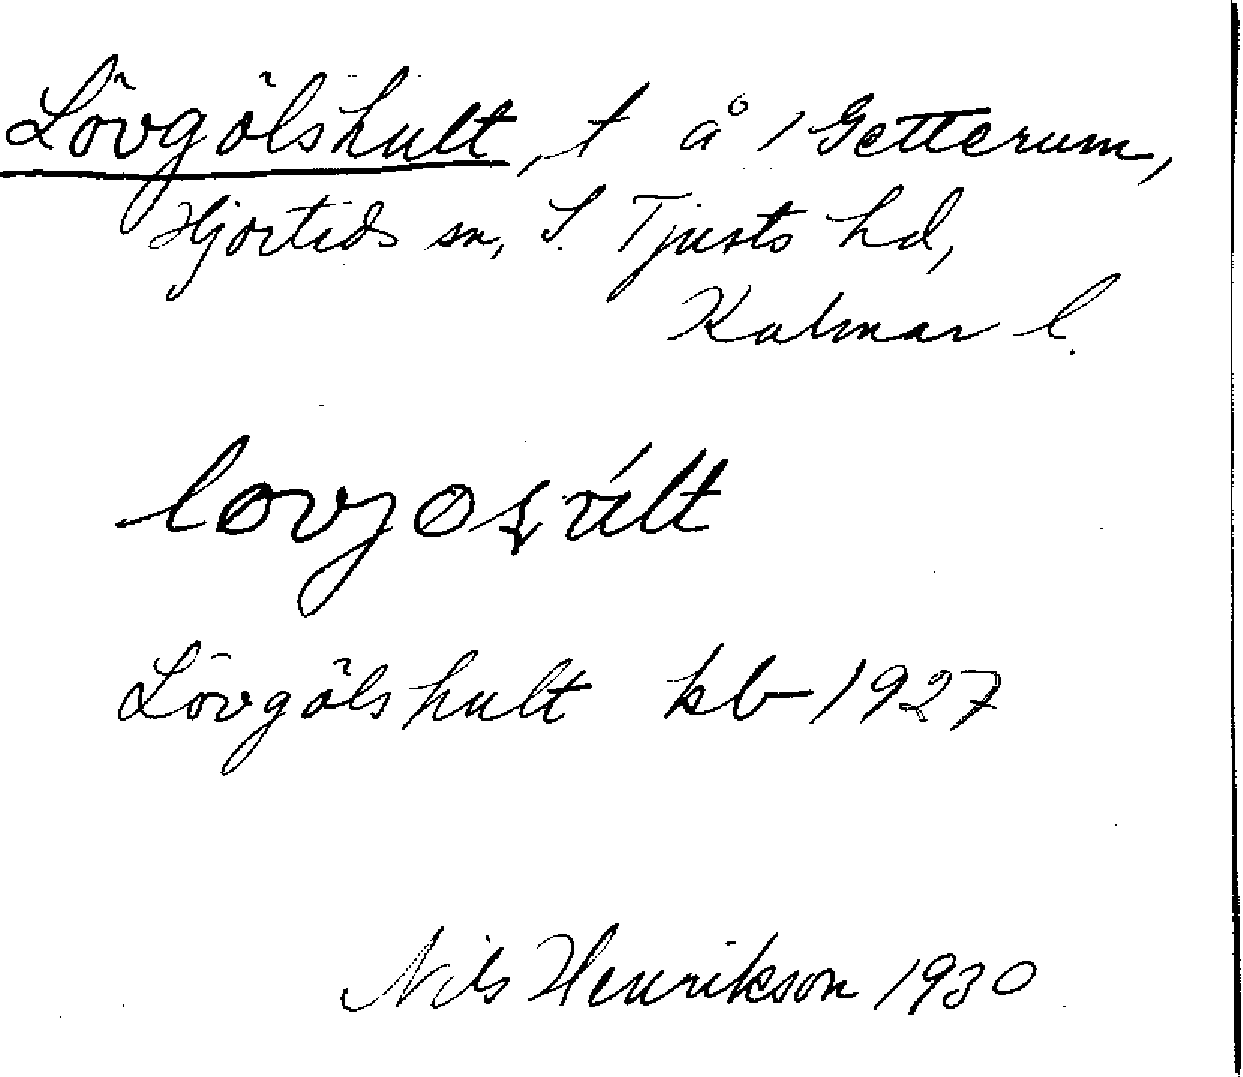 Lövgölshult, t å 1 Getterum,
Hjorteds sn, S. Tjusts hd,
Kalmar l.
Lövgölshult kb 1927
Nils Henrikson 1930